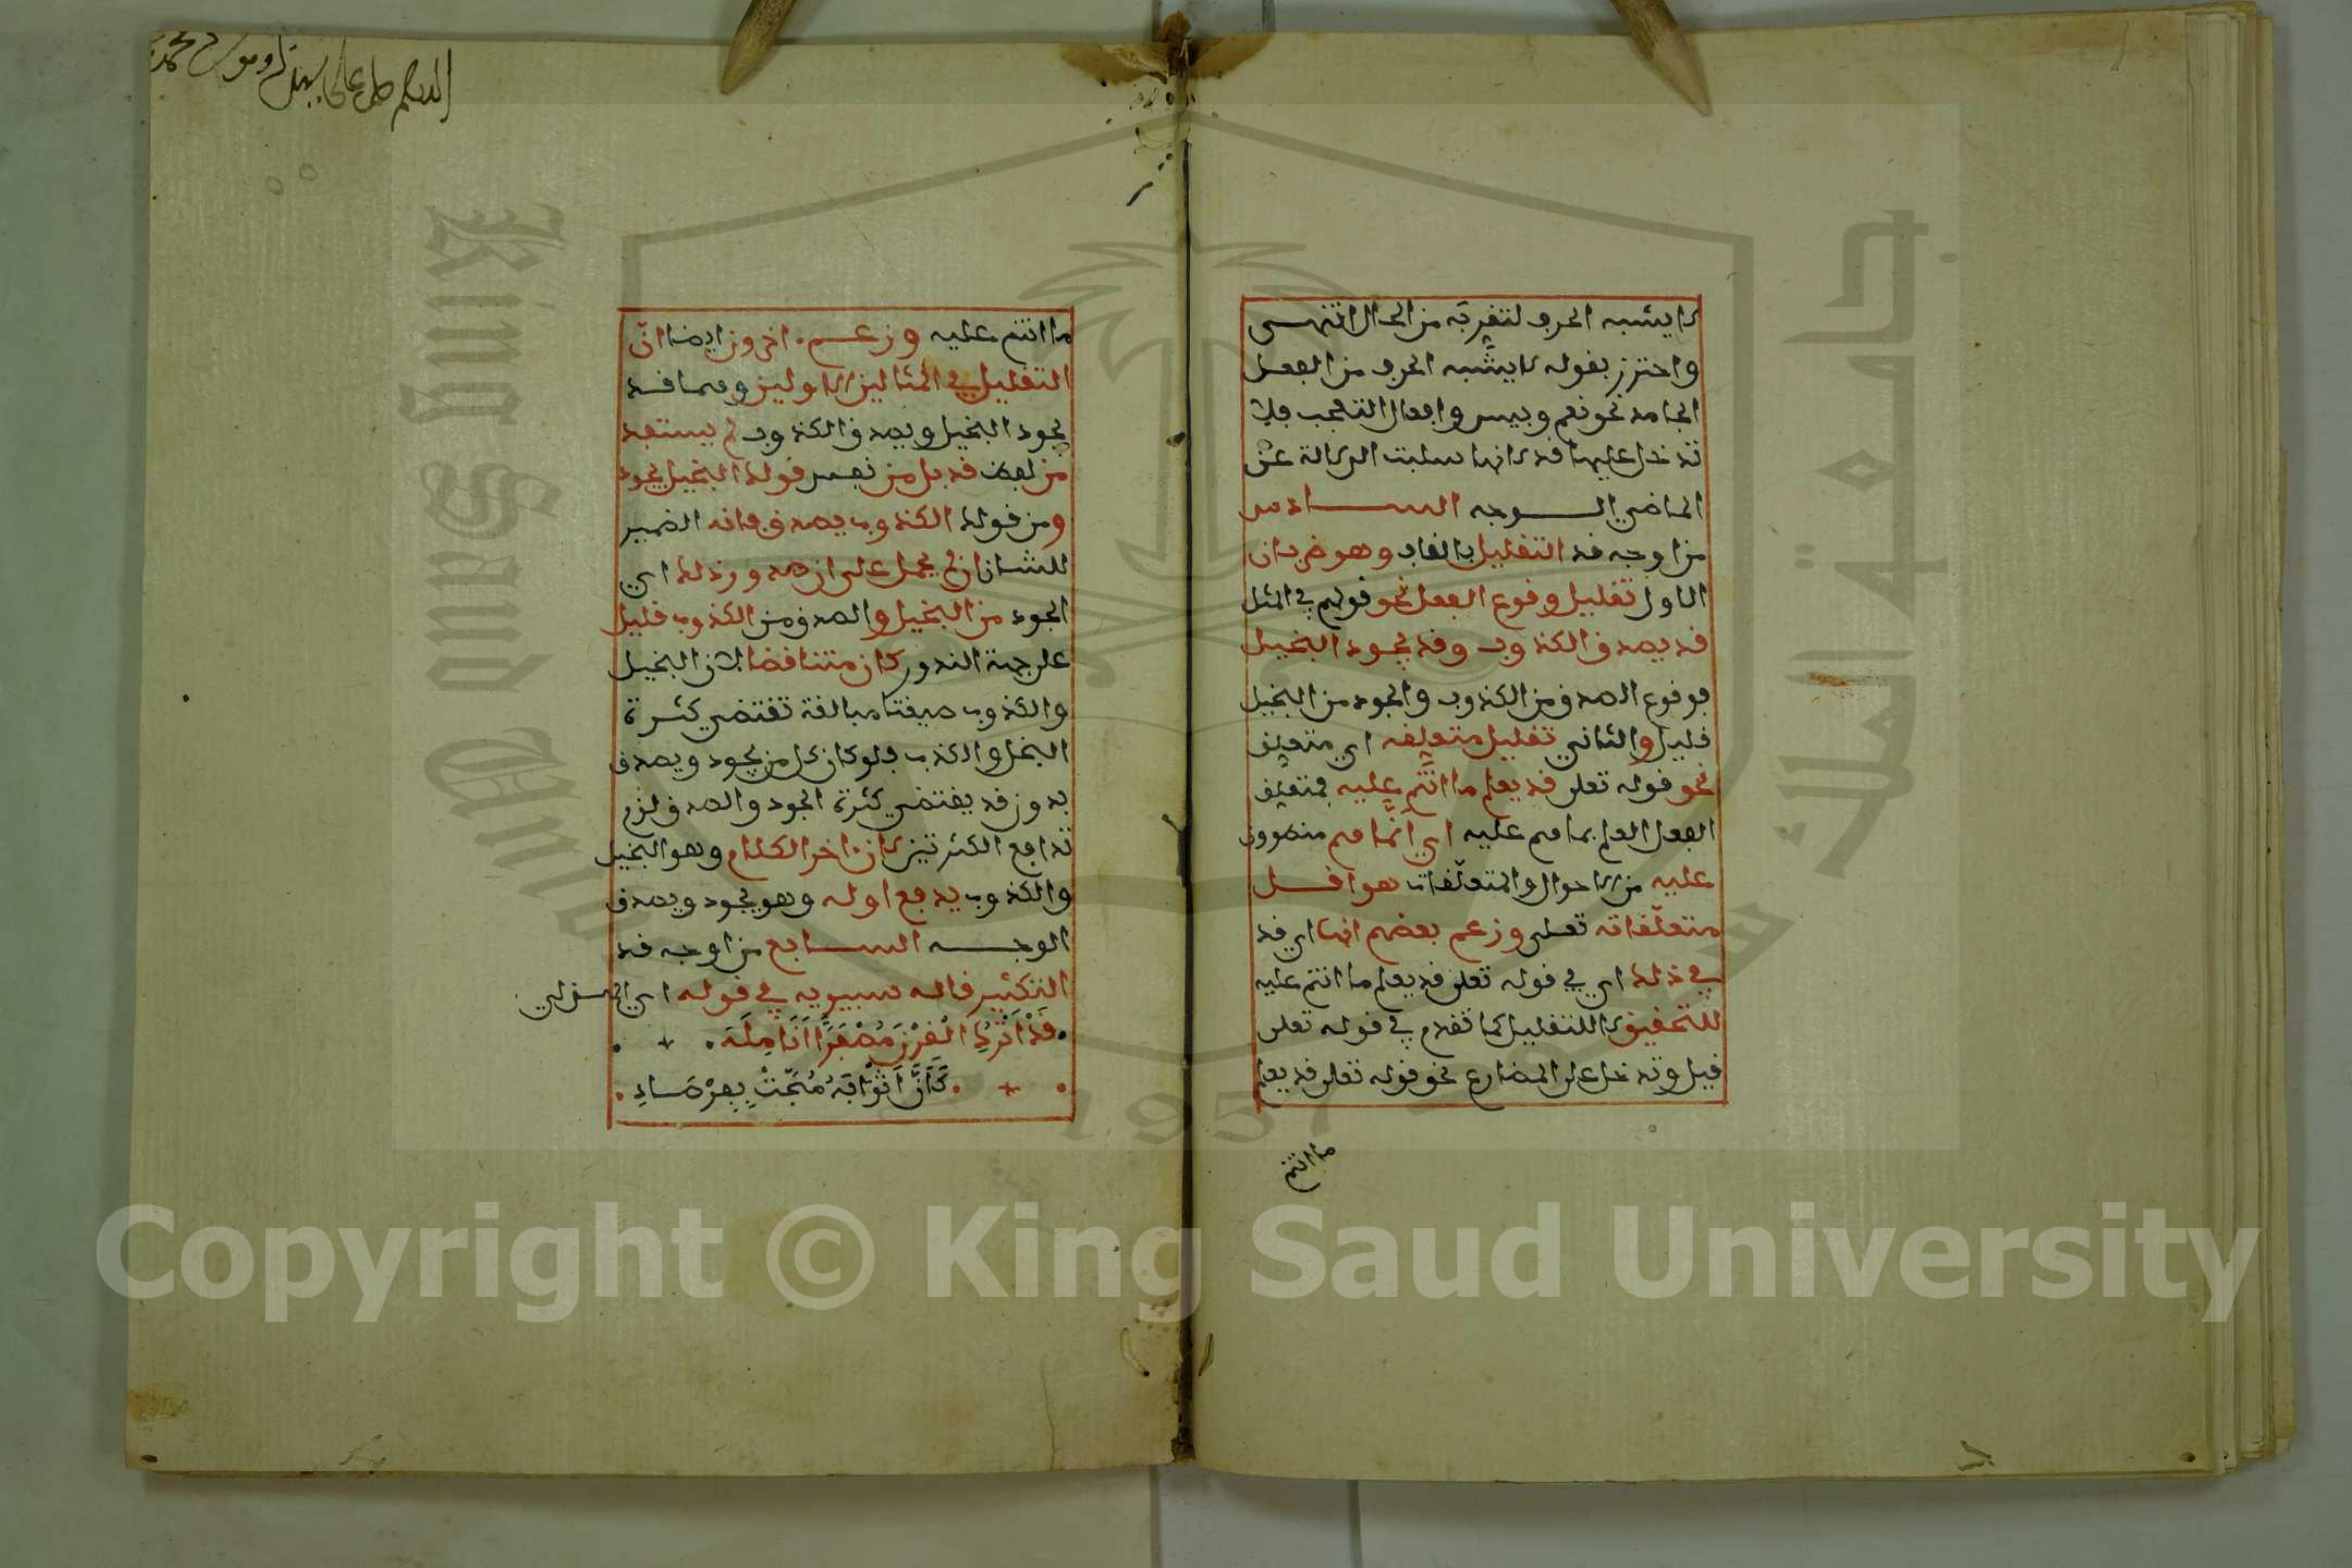 لا يشبه الحرف لتقربه من الحال انتهى
واحترز بقوله لا يشبه الحرف من الفعل
الجامد نحو نعم وبيس وافعال التعجب فلا
تدخل عليها قد لانها سلبت الدلالة على
الماضي الوجه السادس
من اوجه قد التقليل بالقاف وهو ضربان
الاول تقليل وقوع الفعل نحو قولهم في المثل
قد يصدق الكذوب وقد يجود البخيل
فوقوع الصدق من الكذوب والجود من البخيل
قليل والثاني تقليل متعلقه اي متعلق
نحو قوله تعلى قد يعلم ما انتم عليه فمتعلق
الفعل العلم بما هم عليه اي انما هم منطوون
عليه من الاحوال والمتعلقات هو اقل
متعلقاته تعلى وزعم بعضهم انها اي قد
في ذلك اي في قوله تعلى قد يعلم ما انتم عليه
للتحقيق لا للتقليل كما تقدم في قوله تعلى
قبل وتدخل على المضارع نحو قوله تعلى قد يعلم
ما انتم
اللهم صل على سيدنا ومولانا محمد
ما انتم عليه وزعم اخرون ايضا ان
التقليل في المثالين الاولين وهما قد
يجود البخيل ويصدق الكذوب لم يستفد
من لفظ قد بل من نفس قولك البخيل يجود
ومن قولك الكذوب يصدق فانه الضمير
للشان ان لم يحمل على ان صدور ذلك اي
الجود من البخيل والصدق من الكذوب قليل
على جهة الندور كان متناقضا لان البخيل
والكذوب صيغتا مبالغة تقتضي كثرة
البخل والكذب فلو كان كل من يجود ويصدق
بدون قد يقتضي كثرة الجود والصدق لزم
تدافع الكثرتين لان اخر الكلام وهو البخيل
والكذوب يدفع اوله وهو يجود ويصدق
الوجه السابع من اوجه قد
التكثير قاله سيبويه في قوله اي الهذلي
قَدْ اَتْرُكُ الْقِرْنَ مُصْفَرًّا اَنَامِلُهُ
كَاَنَّ اَثْوَابَهُ مُجَّتْ بِفِرْصَادِ
Copyright © King Saud University
King Saud University
جامعة الملك سعود
1957